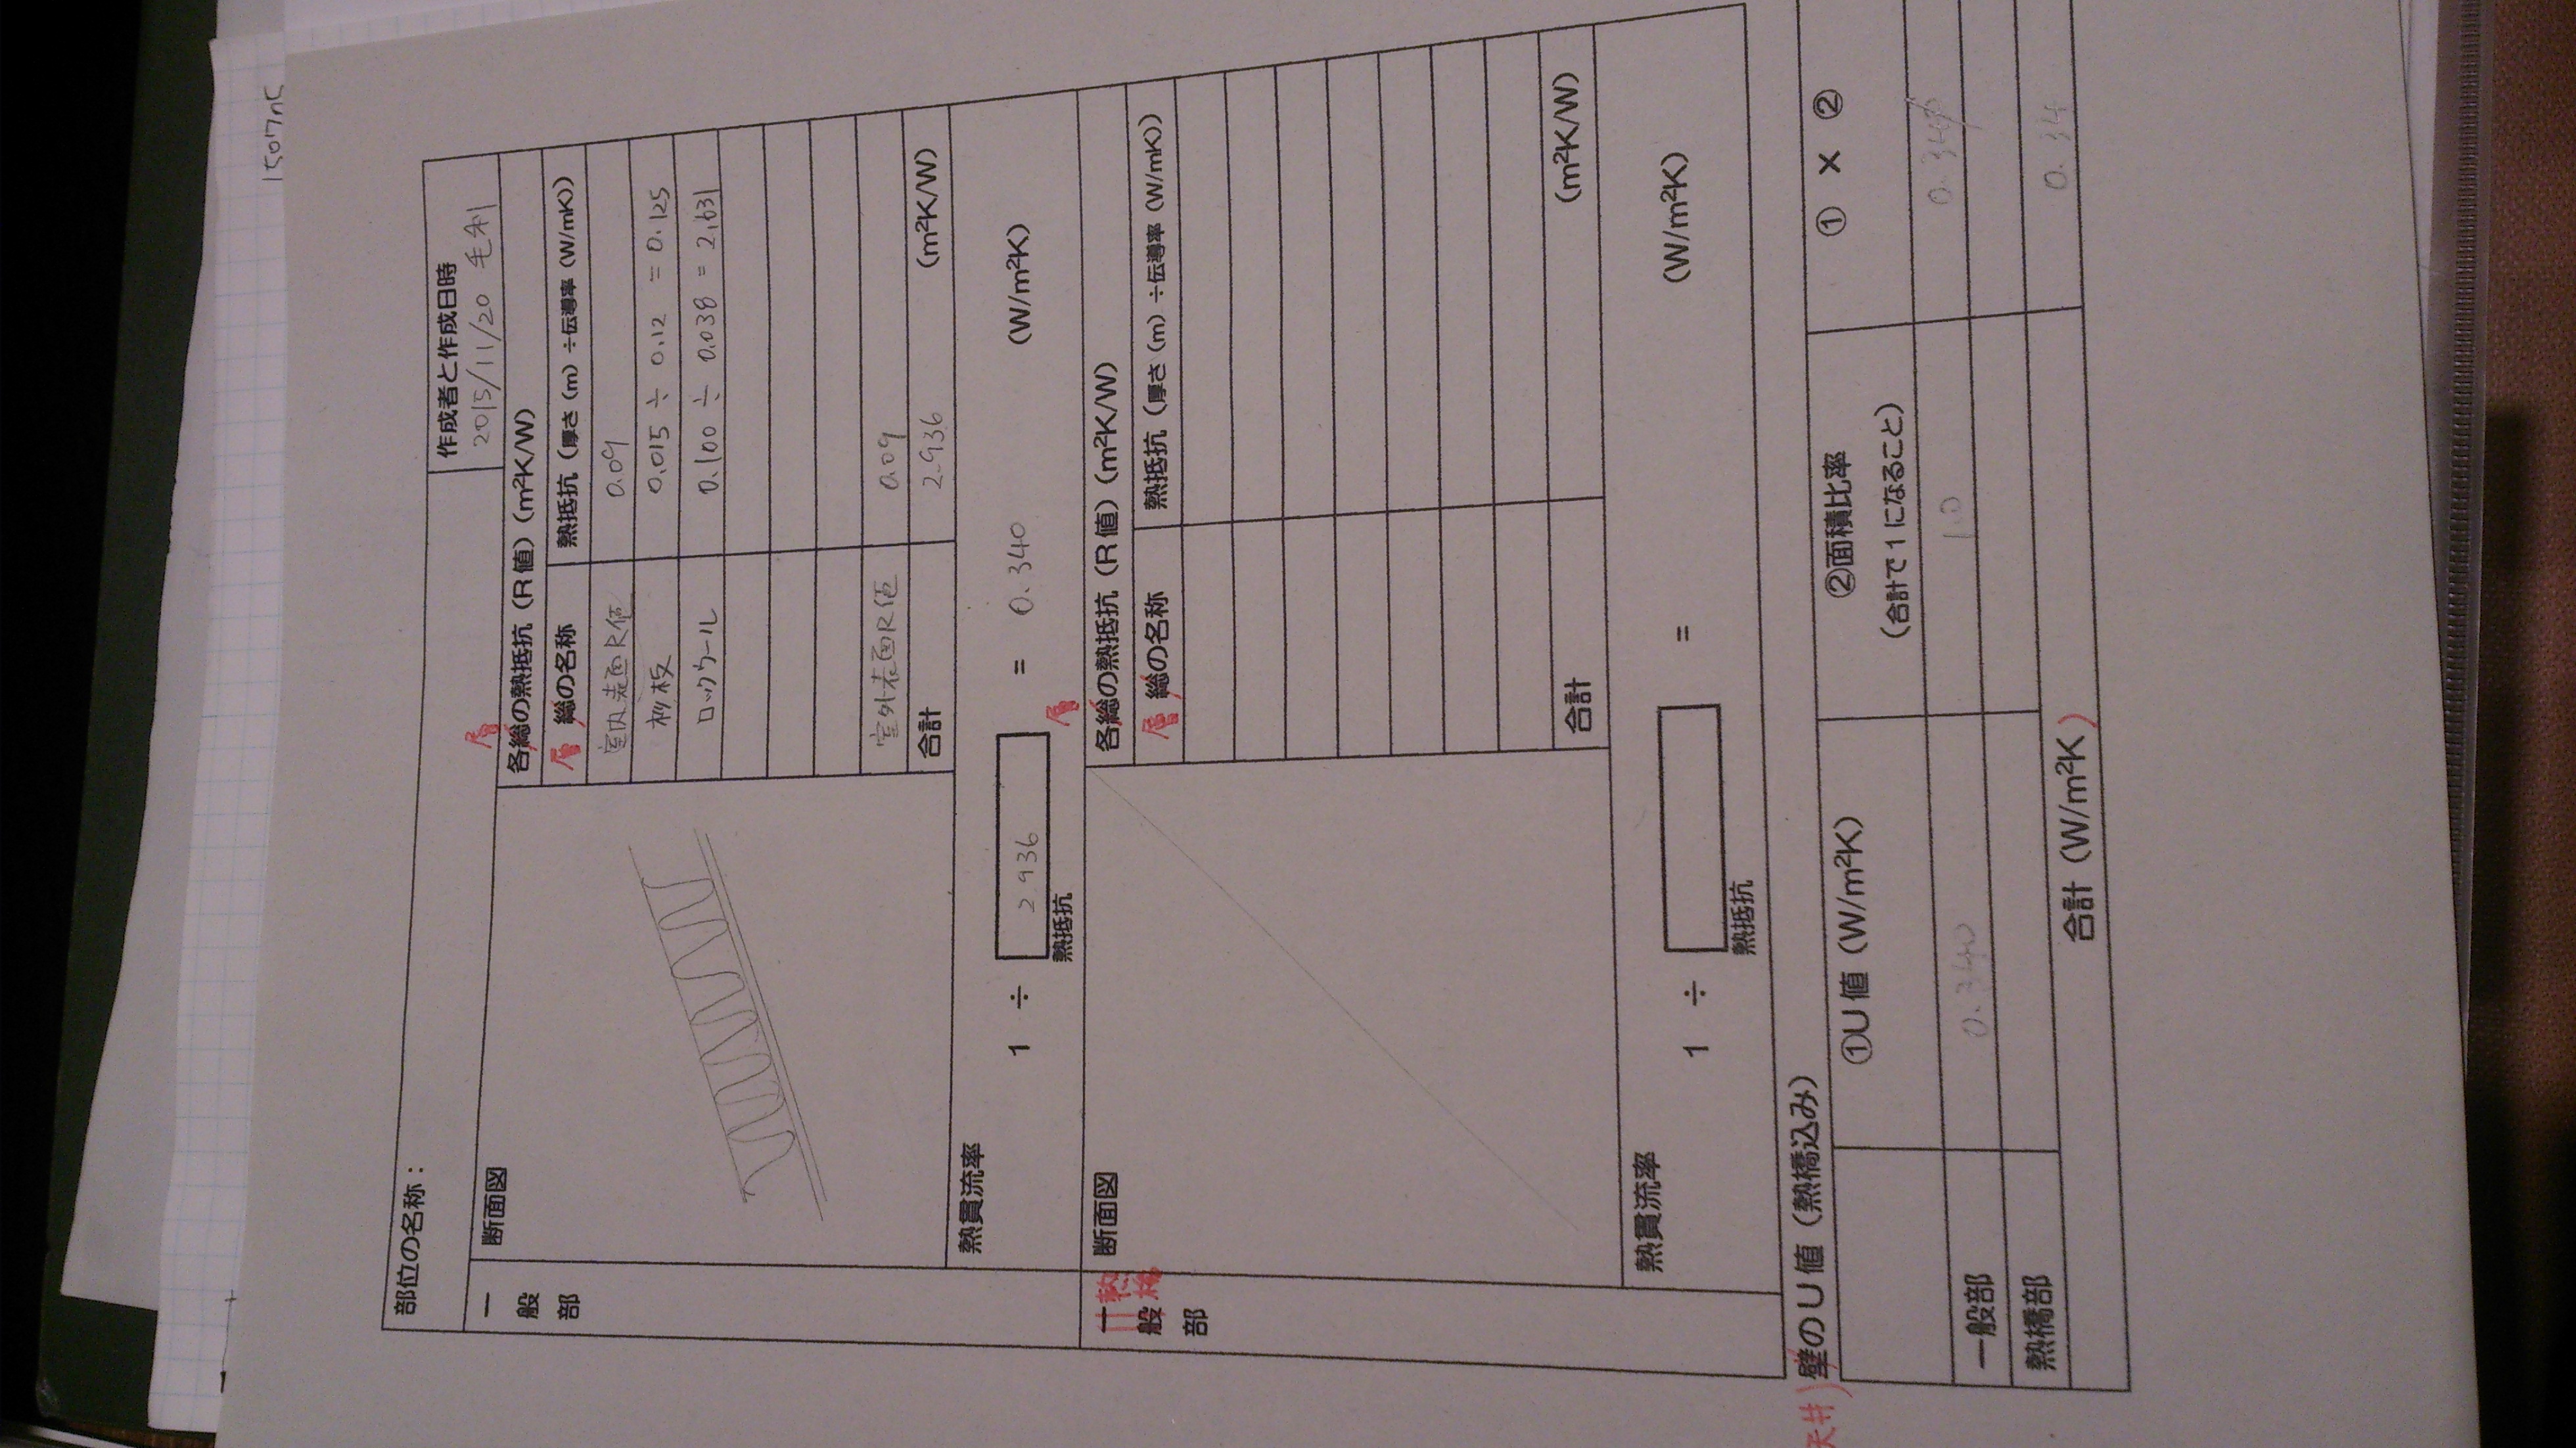 部位の名称：
作成者と作成日時
2015/11/20 毛利
一般部
断面図
層
各総の熱抵抗（R値）(m²K/W)
層 総の名称 熱抵抗（厚さ（m）÷伝導率（W/mK））
室内表面R値 0.09
杉板 0.015 ÷ 0.12 = 0.125
ロックウール 0.100 ÷ 0.038 = 2.631
室外表面R値 0.09
合計 2.936 (m²K/W)
熱貫流率
1 ÷ 2.936 = 0.340 (W/m²K)
熱抵抗
一般部
熱橋
断面図
層
各総の熱抵抗（R値）(m²K/W)
層 総の名称 熱抵抗（厚さ（m）÷伝導率（W/mK））
合計 (m²K/W)
熱貫流率
1 ÷ = (W/m²K)
熱抵抗
天井) 壁のU値（熱橋込み）
①U値（W/m²K） ②面積比率 ① × ②
（合計で1になること）
一般部 0.340 1.0 0.340
熱橋部
合計（W/m²K) 0.34